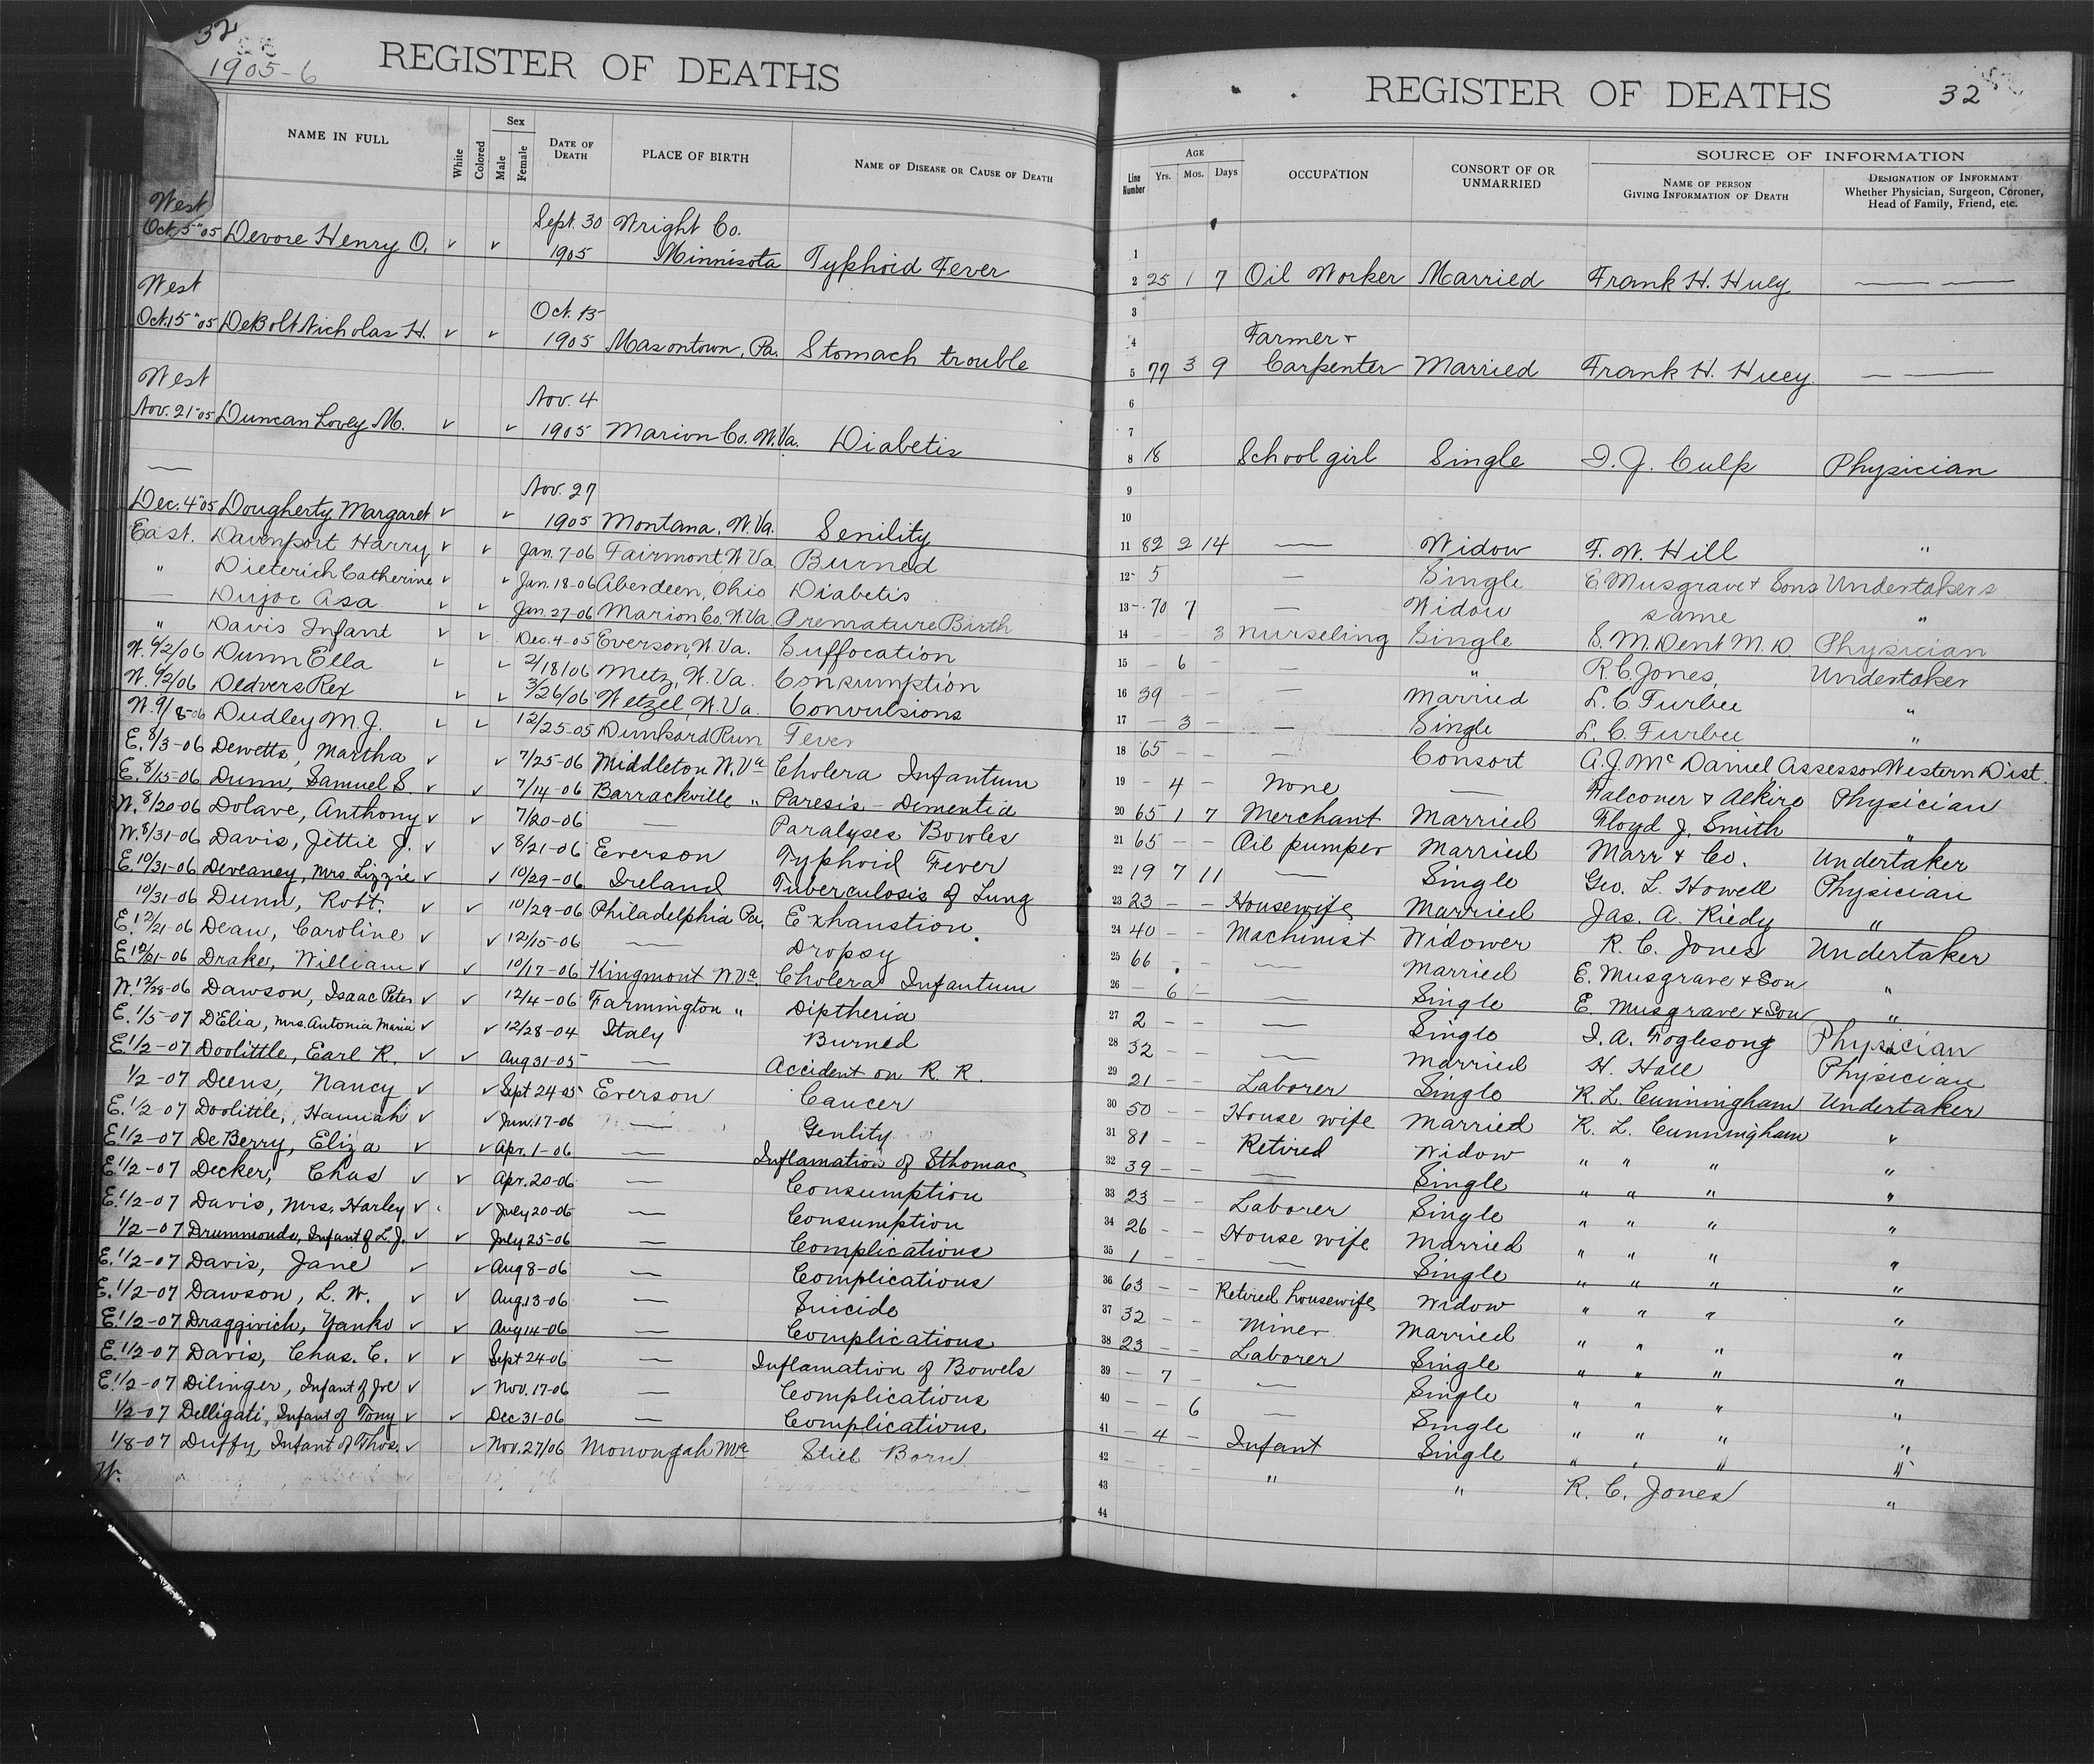 32
1905-6
REGISTER OF DEATHS
NAME IN FULL White Colored Sex Male Female DATE OF DEATH PLACE OF BIRTH NAME OF DISEASE OR CAUSE OF DEATH
West Sept. 30 Wright Co.
Oct. 5"05 Devore Henry O. ✓ ✓ 1905 Minnisota Typhoid Fever
West Oct. 13
Oct. 15"05 DeBolt Nicholas H. ✓ ✓ 1905 Masontown, Pa. Stomach trouble
West Nov. 4
Nov. 21"05 Duncan Lovey M. ✓ ✓ 1905 Marion Co. W.Va. Diabetis
— Nov. 27
Dec. 4"05 Dougherty Margaret ✓ ✓ 1905 Montana, W.Va. Senility
East. Davenport Harry ✓ ✓ Jan. 7-06 Fairmont W Va Burned
" Dieterich Catherine ✓ ✓ Jan. 18-06 Aberdeen, Ohio Diabetis
— Asa ✓ ✓ Jan. 27-06 Marion Co. W.Va. Premature Birth
" Davis Infant ✓ ✓ Dec. 4-05 Everson, W Va. Suffocation
W. 6/2/06 Dunn Ella ✓ ✓ 2/18/06 Metz, W. Va. Consumption
W. 6/2/06 Dedvers Rex ✓ ✓ 3/26/06 Wetzel, W. Va. Convulsions
W. 9/8-06 Dudley M. J. ✓ ✓ 12/25-05 Dunkard Run Fever
E. 8/3-06 Dewetts, Martha ✓ ✓ 7/25-06 Middleton W. Va Cholera Infantum
E. 8/15-06 Dunn, Samuel S. ✓ ✓ 7/14-06 Barrackville " Paresis - Dementia
W. 8/20-06 Dolave, Anthony ✓ ✓ 7/20-06 — Paralyses Bowles
W. 8/31-06 Davis, Jettie J. ✓ ✓ 8/21-06 Everson Typhoid Fever
E. 10/31-06 Deveaney, Mrs Lizzie ✓ ✓ 10/29-06 Ireland Tuberculosis of Lung
10/31-06 Dunn, Robt. ✓ ✓ 10/29-06 Philadelphia Pa. Exhaustion
E. 12/21-06 Dean, Caroline ✓ ✓ 12/15-06 — Dropsy
E 12/21-06 Drake, William ✓ ✓ 10/17-06 Kingmont W.Va. Cholera Infantum
W. 12/28-06 Dawson, Isaac Peter ✓ ✓ 12/4-06 Farmington " Diptheria
E. 1/5-07 D'Elia, Mrs. Antonia Maria ✓ ✓ 12/28-04 Italy Burned
E. 1/2-07 Doolittle, Earl R. ✓ ✓ Aug 31-05 — Accident on R. R.
1/2-07 Deens, Nancy ✓ ✓ Sept 24-05 Everson Cancer
E. 1/2-07 Doolittle, Hannah ✓ ✓ Jun. 17-06 — Genlity
E 1/2-07 DeBerry, Eliza ✓ ✓ Apr. 1-06 — Inflamation of Sthomac
E. 1/2-07 Decker, Chas ✓ ✓ Apr. 20-06 — Consumption
E. 1/2-07 Davis, Mrs. Harley ✓ ✓ July 20-06 — Consumption
1/2-07 Drummonds, Infant of L. J. ✓ ✓ July 25-06 — Complications
E. 1/2-07 Davis, Jane ✓ ✓ Aug 8-06 — Complications
E. 1/2-07 Dawson, L. W. ✓ ✓ Aug. 13-06 — Suicide
E. 1/2-07 Draggivich, Yanko ✓ ✓ Aug 14-06 — Complications
E. 1/2-07 Davis, Chas. C. ✓ ✓ Sept 24-06 — Inflamation of Bowels
E. 1/2-07 Dilinger, Infant of Joe ✓ ✓ Nov. 17-06 — Complications
1/2-07 Delligati, Infant of Tony ✓ ✓ Dec 31-06 — Complications
1/8-07 Duffy, Infant of Thos. ✓ ✓ Nov. 27/06 Monongah Still Born
W.
REGISTER OF DEATHS 32
Line Number AGE Yrs. Mos. Days OCCUPATION CONSORT OF OR UNMARRIED SOURCE OF INFORMATION
NAME OF PERSON GIVING INFORMATION OF DEATH
DESIGNATION OF INFORMANT Whether Physician, Surgeon, Coroner, Head of Family, Friend, etc.
1
2 25 1 7 Oil Worker Married Frank H. Huey — —
3
4 Farmer +
5 77 3 9 Carpenter Married Frank H. Huey — —
6
7
8 18 School girl Single I. J. Culp Physician
9
10
11 82 2 14 — Widow F. W. Hill "
12 5 — Single E. Musgrave + Sons Undertakers
13 70 7 — Widow same "
14 - - 3 nurseling Single S. M. Dent M. D. Physician
15 - 6 - — " R. C. Jones, Undertaker
16 39 - - — Married L. C. Furbee "
17 - 3 - — Single L. C. Furbee "
18 65 - - — Consort A. J. McDaniel Assessor Western Dist.
19 - 4 - None — Falconer & Alkire Physician
20 65 1 7 Merchant Married Floyd J. Smith "
21 65 - - Oil pumper Married Marr & Co. Undertaker
22 19 7 11 — Single Geo. L. Howell Physician
23 23 - - Housewife Married Jas. A. Riedy "
24 40 - - Machinist Widower R. C. Jones Undertaker
25 66 - - — Married E. Musgrave & Son "
26 - 6 - — Single E. Musgrave & Son "
27 2 - - — Single I. A. Foglesong Physician
28 32 - - — Married H. Hall Physician
29 21 - - Laborer Single R. L. Cunningham Undertaker
30 50 - - House wife Married R. L. Cunningham "
31 81 - - Retired Widow " " " "
32 39 - - — Single " " " "
33 23 - - Laborer Single " " " "
34 26 - - House wife Married " " " "
35 1 - - — Single " " " "
36 63 - - Retired housewife Widow " " " "
37 32 - - Miner Married " " " "
38 23 - - Laborer Single " " " "
39 - 7 - — Single " " " "
40 - - 6 — Single " " " "
41 - 4 - Infant Single " " " "
42 - - - " " R. C. Jones "
43
44